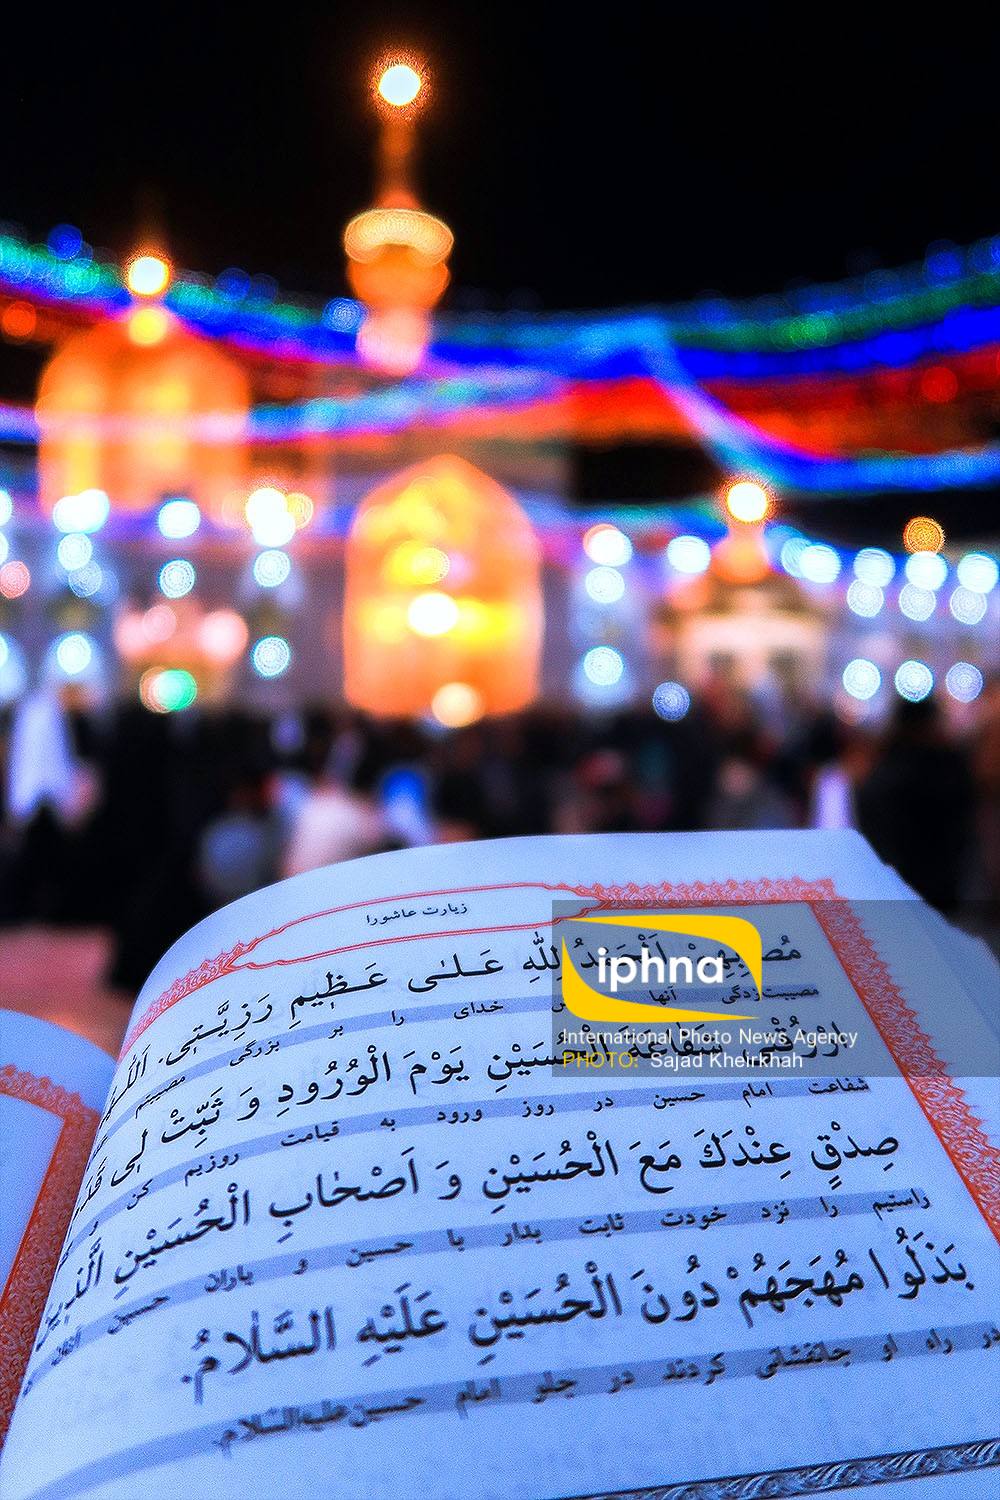 زیارت عاشورا
مُصابِهِمْ اَلْحَمْدُ لِلّٰهِ عَـلـٰی عَـظـٖیمِ رَزِیَّـتـٖی.
مصیبت‌زدگی آنها خدای را بر بزرگی
ارْزُقْنٖی شَفاعَةَ الْحُسَیْنِ یَوْمَ الْوُرُودِ وَ ثَبِّتْ لٖی
شفاعت امام حسین در روز ورود به قیامت روزیم کن و
صِدْقٍ عِنْدَكَ مَعَ الْحُسَیْنِ وَ اَصْحٰابِ الْحُسَیْنِ الَّذٖینَ
راستیم را نزد خودت ثابت بدار با حسین و یاران حسین
بَذَلُوا مُهَجَهُمْ دُونَ الْحُسَیْنِ عَلَیْهِ السَّلٰامُ.
در راه او جانفشانی کردند در جلو امام حسین‌علیه‌السّلام.
iphna
International Photo News Agency
PHOTO: Sajad Kheirkhah